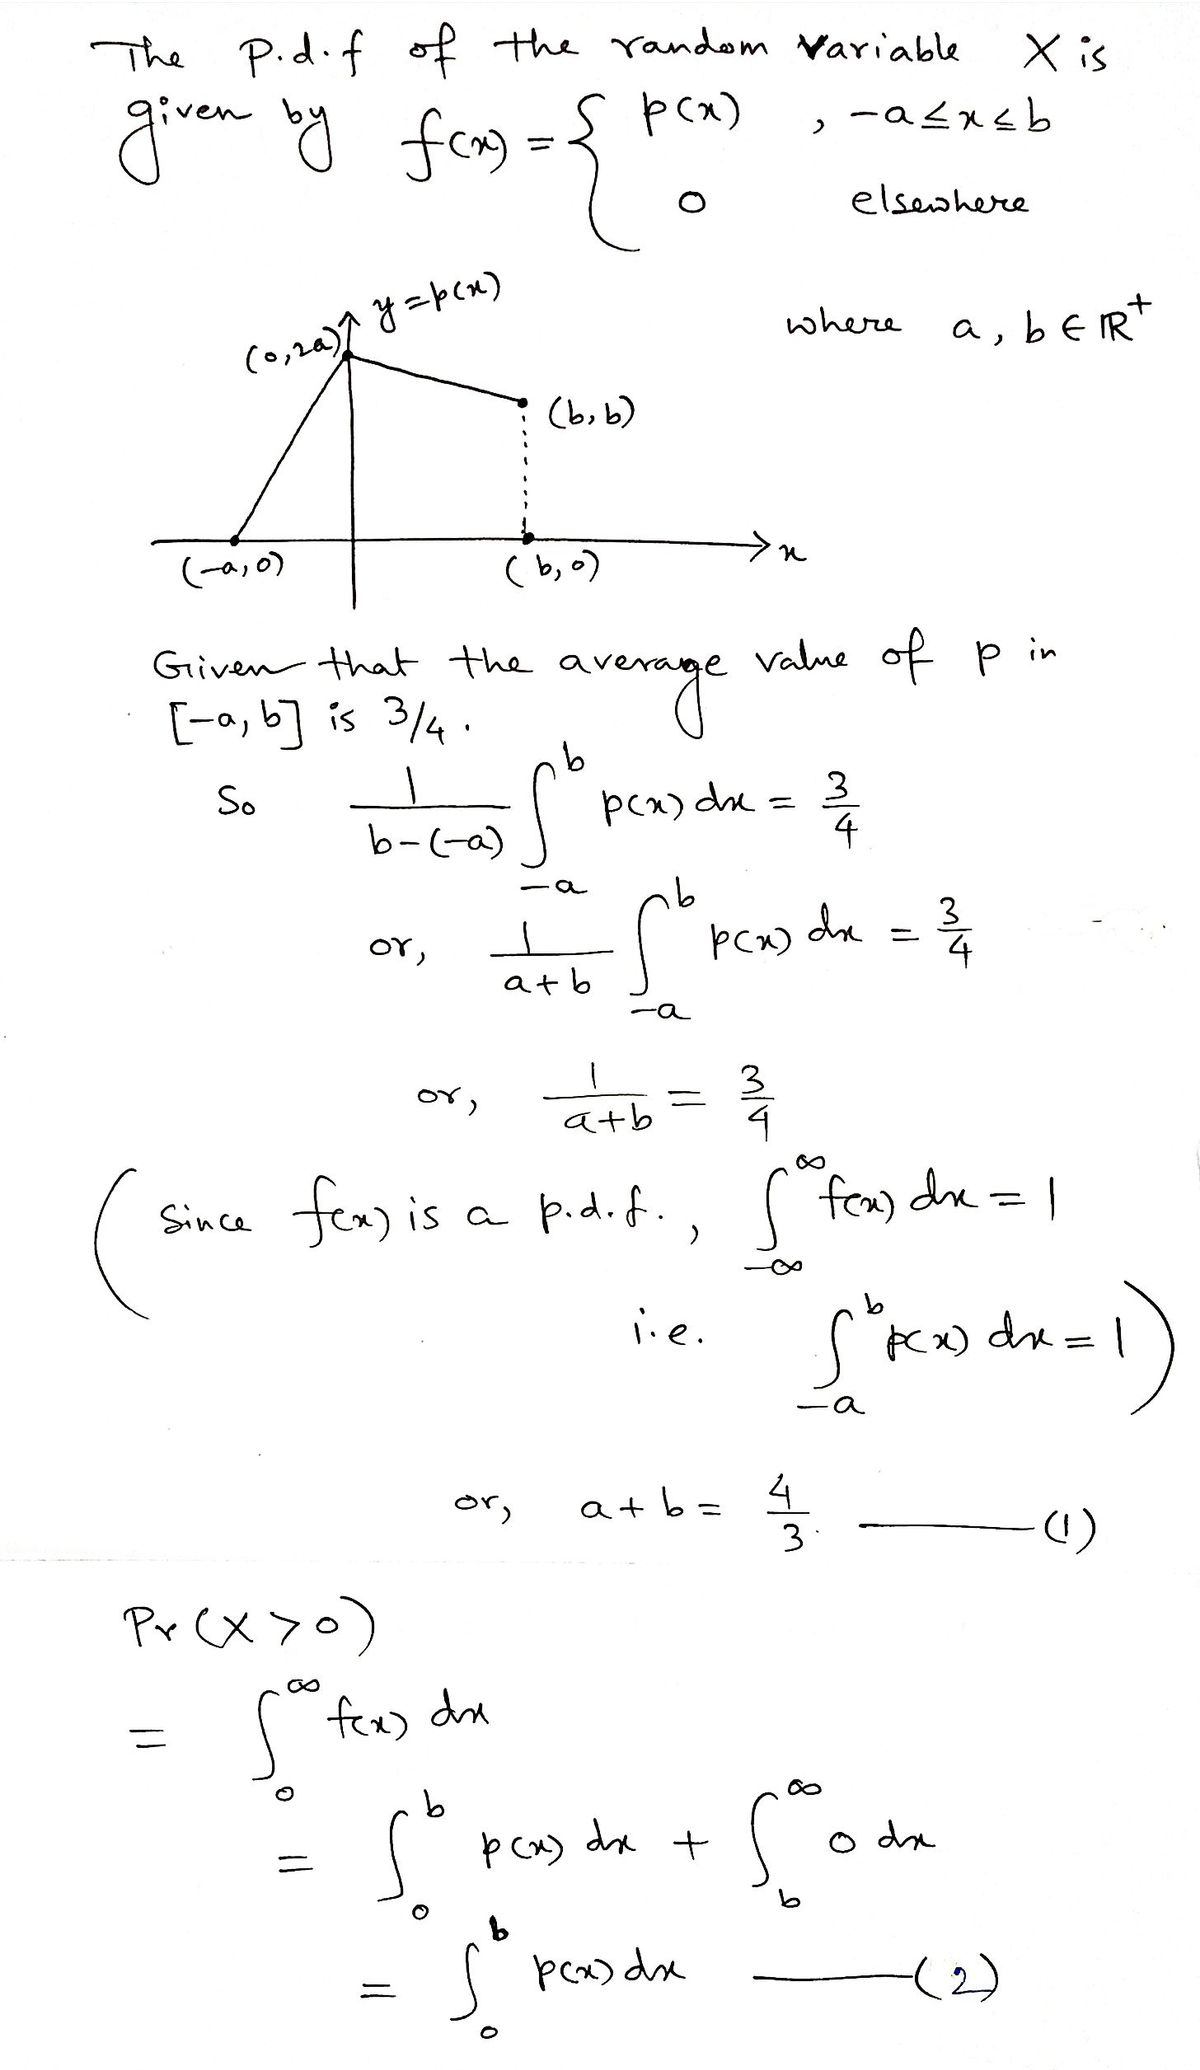 The p.d.f of the random variable X is
given by f(x) = { p(x) , -a ≤ x ≤ b
0 elsewhere
y = p(x)
where a, b ∈ ℝ⁺
(0, 2a)
(b, b)
(-a, 0)
(b, 0)
x
Given that the average value of p in
[-a, b] is 3/4.
So 1/(b-(-a)) ∫_{-a}^{b} p(x) dx = 3/4
or, 1/(a+b) ∫_{-a}^{b} p(x) dx = 3/4
or, 1/(a+b) = 3/4
(Since f(x) is a p.d.f., ∫_{-∞}^{∞} f(x) dx = 1
i.e. ∫_{-a}^{b} p(x) dx = 1)
or, a + b = 4/3 ——— (1)
Pr (X > 0)
= ∫_{0}^{∞} f(x) dx
= ∫_{0}^{b} p(x) dx + ∫_{b}^{∞} 0 dx
= ∫_{0}^{b} p(x) dx ——— (2)